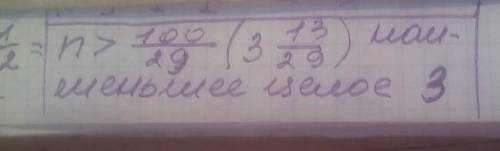 1/2 = n > 100/29 (3 13/29) наи-
меньшее целое 3